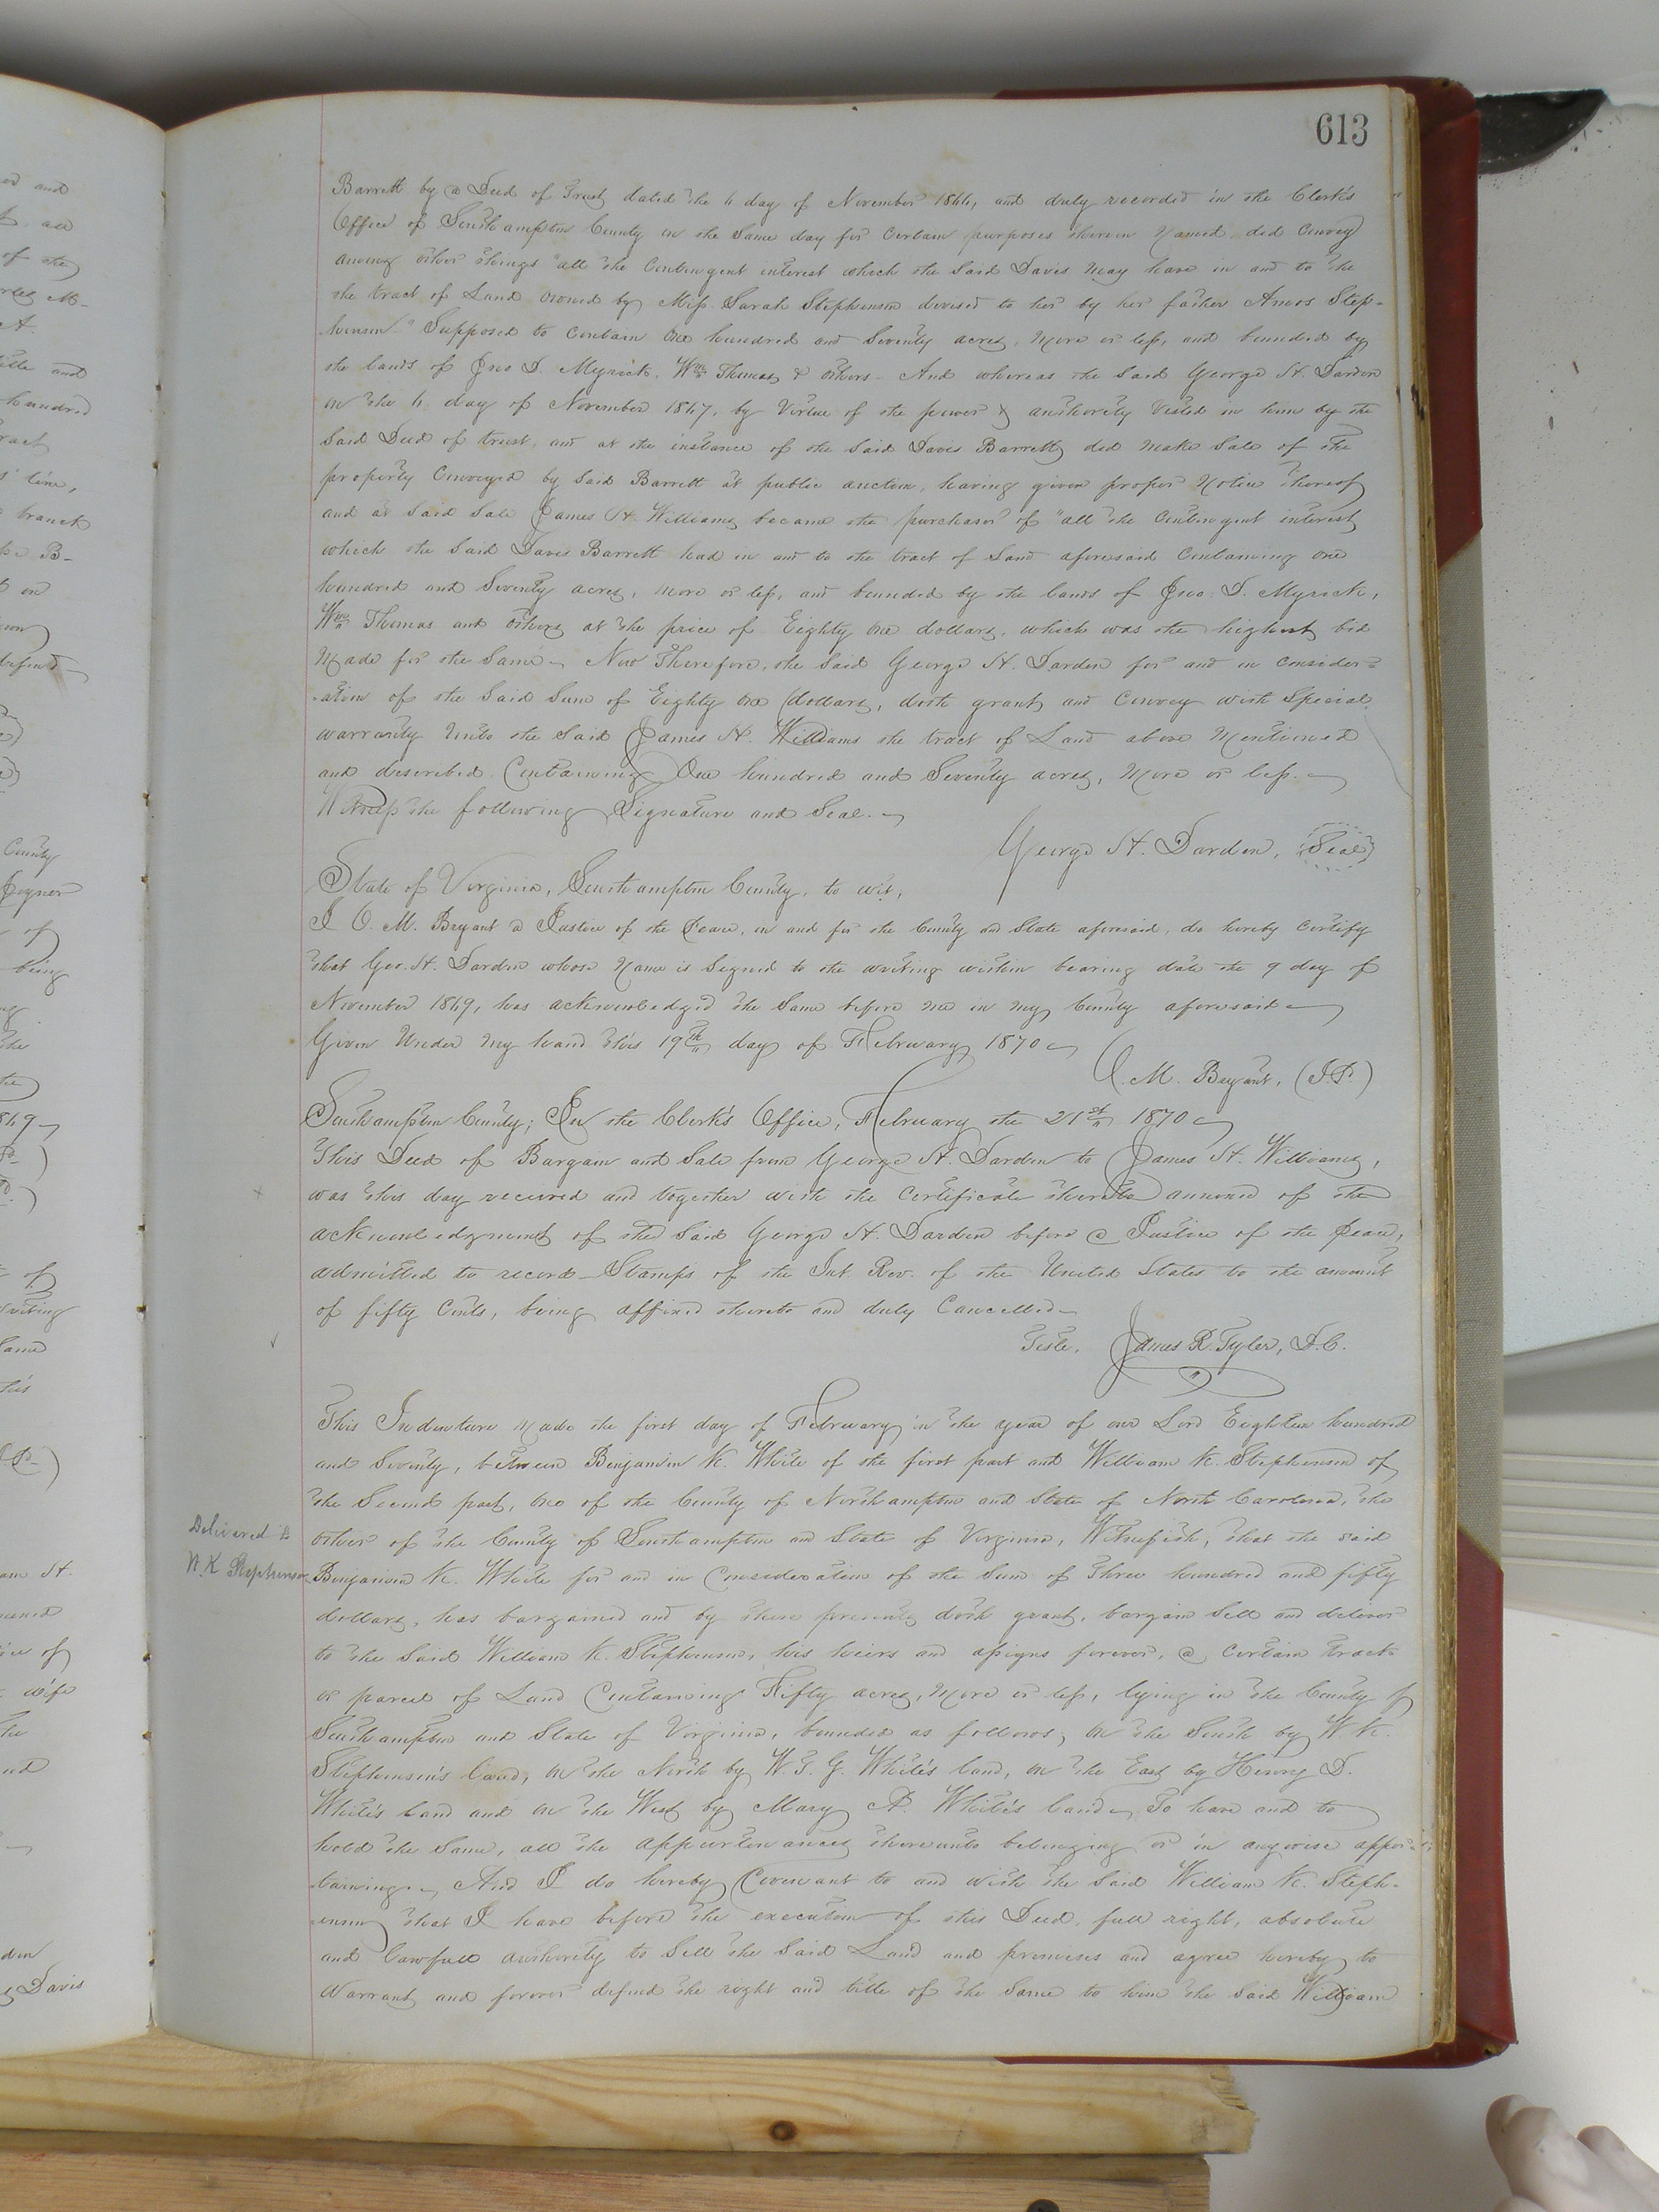 613
Barrett by a Deed of Trust dated the 4 day of November 1844, and duly recorded in the Clerk's
Office of Southampton County on the Same day for Certain purposes therein Named did Convey
among other things "all the Contingent interest which the Said Davis may have in and to the
the tract of Land owned by Miss Sarah Stephenson devised to her by her father Amos Step-
-henson" Supposed to Contain One hundred and Seventy acres, More or less, and bounded by
the lands of Jno D. Myrick, Wm Thomas & others - And whereas the Said George H. Darden
on the 4 day of November 1847, by Virtue of the power & authority Vested in him by the
Said Deed of trust, and at the instance of the Said Davis Barrett, did Make Sale of the
property Conveyed by Said Barrett at public auction, having given proper Notice thereof
and at Said Sale James H. Williams became the purchaser of "all the Contingent interest
which the Said Davis Barrett had in and to the tract of Land aforesaid Containing One
hundred and Seventy acres, more or less, and bounded by the lands of Jno: D. Myrick,
Wm Thomas and others at the price of Eighty One dollars, which was the highest bid
Made for the Same - Now Therefore, the Said George H. Darden for and in Consider=
-ation of the Said Sum of Eighty One dollars, doth grant and Convey with Special
warranty Unto the Said James H. Williams the tract of Land above Mentioned
and described Containing One hundred and Seventy acres, More or less.
Witness the following Signature and Seal.
George H. Darden, (Seal)
State of Virginia, Southampton County, to wit,
I O. M. Bryant a Justice of the Peace, in and for the County and State aforesaid, do hereby Certify
that Geo. H. Darden whose Name is Signed to the writing within bearing date the 9 day of
November 1849, has acknowledged the Same before me in my County aforesaid
Given Under My hand this 19th day of February 1870
O. M. Bryant, (J.P.)
Southampton County; In the Clerk's Office, February the 21st 1870
This Deed of Bargain and Sale from George H. Darden to James H. Williams,
was this day received and together with the Certificate thereto annexed of the
acknowledgment of the Said George H. Darden before a Justice of the Peace,
admitted to record - Stamps of the Int. Rev. of the United States to the amount
of fifty Cents, being affixed thereto and duly Cancelled -
Teste, James R. Tyler, D.C.
This Indenture Made the first day of February in the year of our Lord Eighteen hundred
and Seventy, between Benjamin K. White of the first part and William K. Stephenson of
the Second part, One of the County of Northampton and State of North Carolina, the
other of the County of Southampton and State of Virginia, Witnesseth, that the said
Delivered to
W. K Stephenson
Benjamin K. White for and in Consideration of the Sum of Three hundred and fifty
dollars, has bargained and by these presents doth grant, bargain Sell and deliver
to the Said William K. Stephenson, his heirs and assigns forever, a Certain tract
or parcel of Land Containing Fifty acres, More or less, lying in the County of
Southampton and State of Virginia, bounded as follows, On the South by W. K.
Stephenson's Land, On the North by W. T. G. White's land, on the East by Henry D.
White's land and On the West by Mary A. White's land. To have and to
hold the Same, all the appurtenances thereunto belonging or in anywise apper-
-taining. And I do hereby Covenant to and with the Said William K. Steph-
-enson that I have before the execution of this Deed, full right, absolute
and lawfull authority to Sell the Said Land and premises and agree hereby to
Warrant and forever defend the right and title of the Same to him the Said William